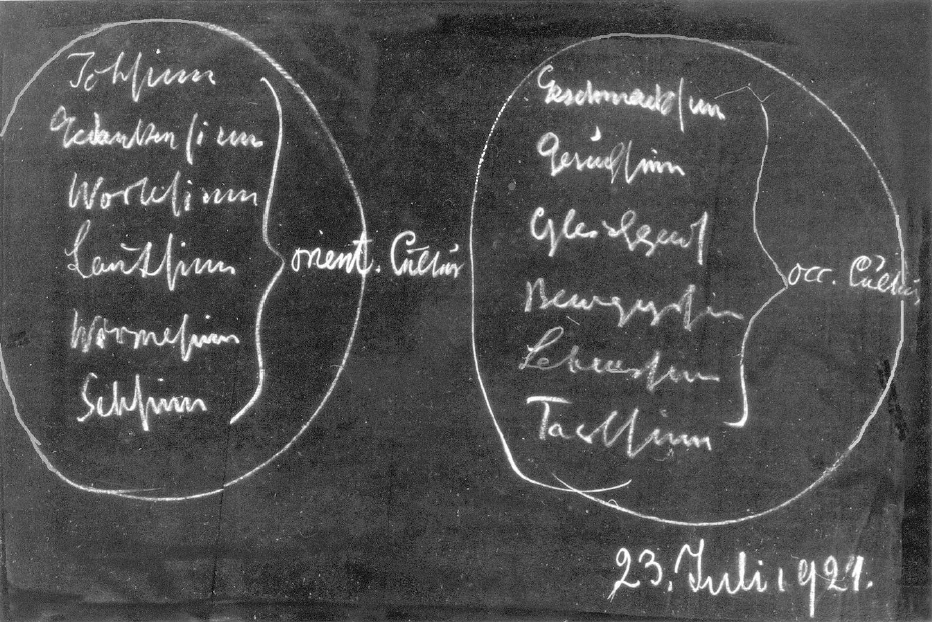 Ichsinn
Gedankensinn
Wortsinn
Lautsinn
Wärmesinn
Sehsinn
orient. Cultur
Geschmacksinn
Geruchsinn
Gleichgew
Bewegungssinn
Lebenssinn
Tastsinn
occ. Cultur
23. Juli 1921.